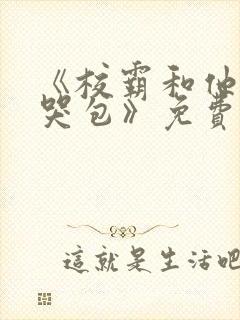 《校霸和他
哭包》免費
這就是生活吧